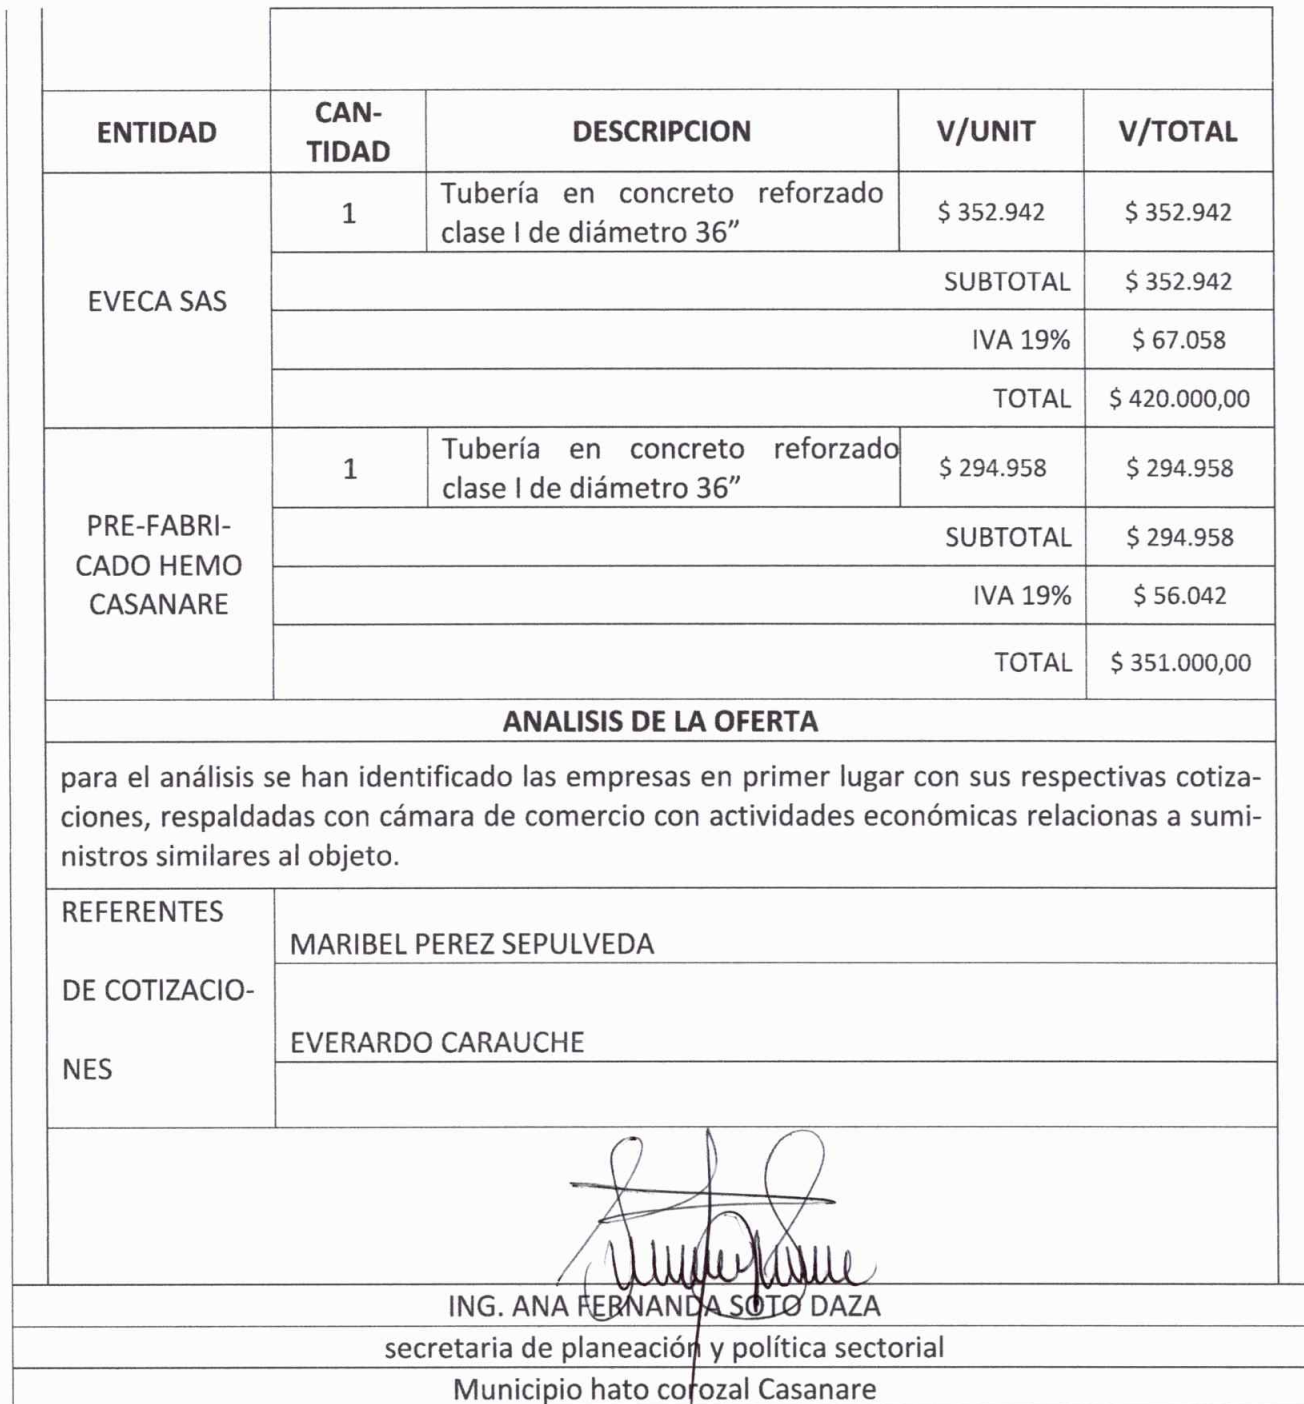 ENTIDAD CAN-
TIDAD DESCRIPCION V/UNIT V/TOTAL
EVECA SAS
1 Tubería en concreto reforzado
clase I de diámetro 36” $ 352.942 $ 352.942
SUBTOTAL $ 352.942
IVA 19% $ 67.058
TOTAL $ 420.000,00
PRE-FABRI-
CADO HEMO
CASANARE
1 Tubería en concreto reforzado
clase I de diámetro 36” $ 294.958 $ 294.958
SUBTOTAL $ 294.958
IVA 19% $ 56.042
TOTAL $ 351.000,00
ANALISIS DE LA OFERTA
para el análisis se han identificado las empresas en primer lugar con sus respectivas cotiza-
ciones, respaldadas con cámara de comercio con actividades económicas relacionas a sumi-
nistros similares al objeto.
REFERENTES
DE COTIZACIO-
NES
MARIBEL PEREZ SEPULVEDA
EVERARDO CARAUCHE
ING. ANA FERNANDA SOTO DAZA
secretaria de planeación y política sectorial
Municipio hato corozal Casanare